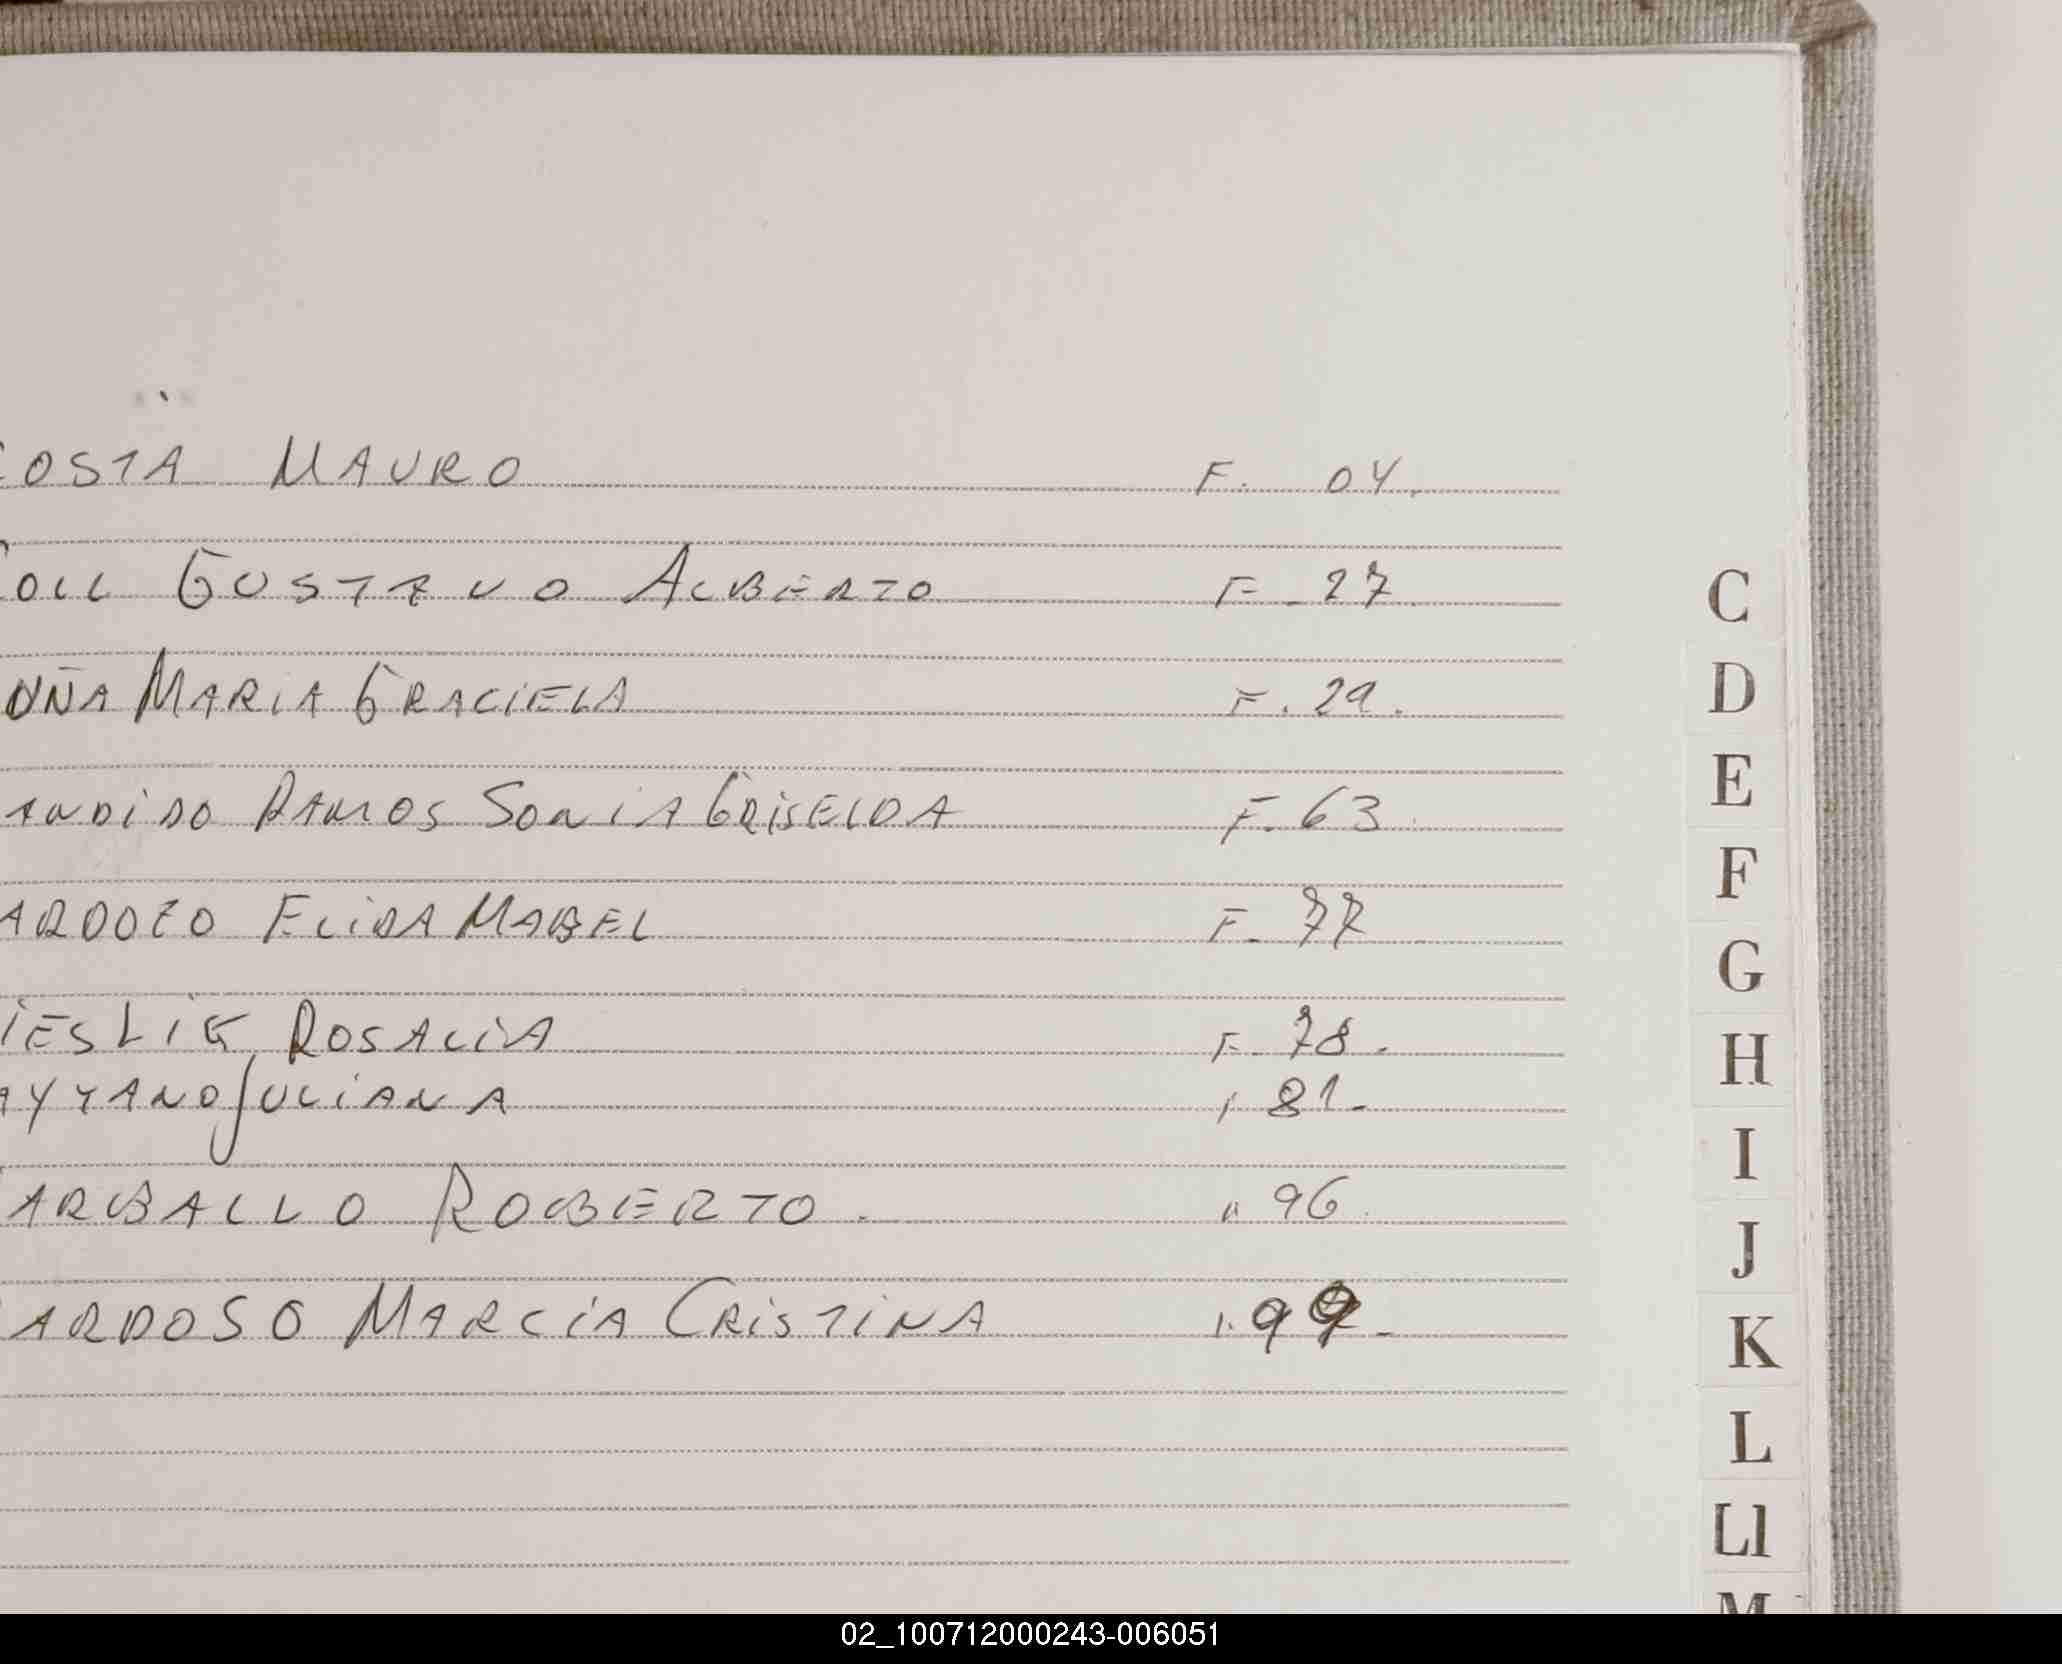 COSTA MAURO F. 04.
COLL GUSTAVO ALBERTO F. 27
UÑA MARIA GRACIELA F. 29.
ANDIDO RAMOS SONIA GRISELDA F. 63
ARDOZO ELIDA MABEL F. 77
IESLIK, ROSALIA F. 78.
AYTANO JULIANA " 81.-
ARBALLO ROBERTO. " 96.
ARDOSO MARCIA CRISTINA " 99.-
C
D
E
F
G
H
I
J
K
L
Ll
M
02_100712000243-006051